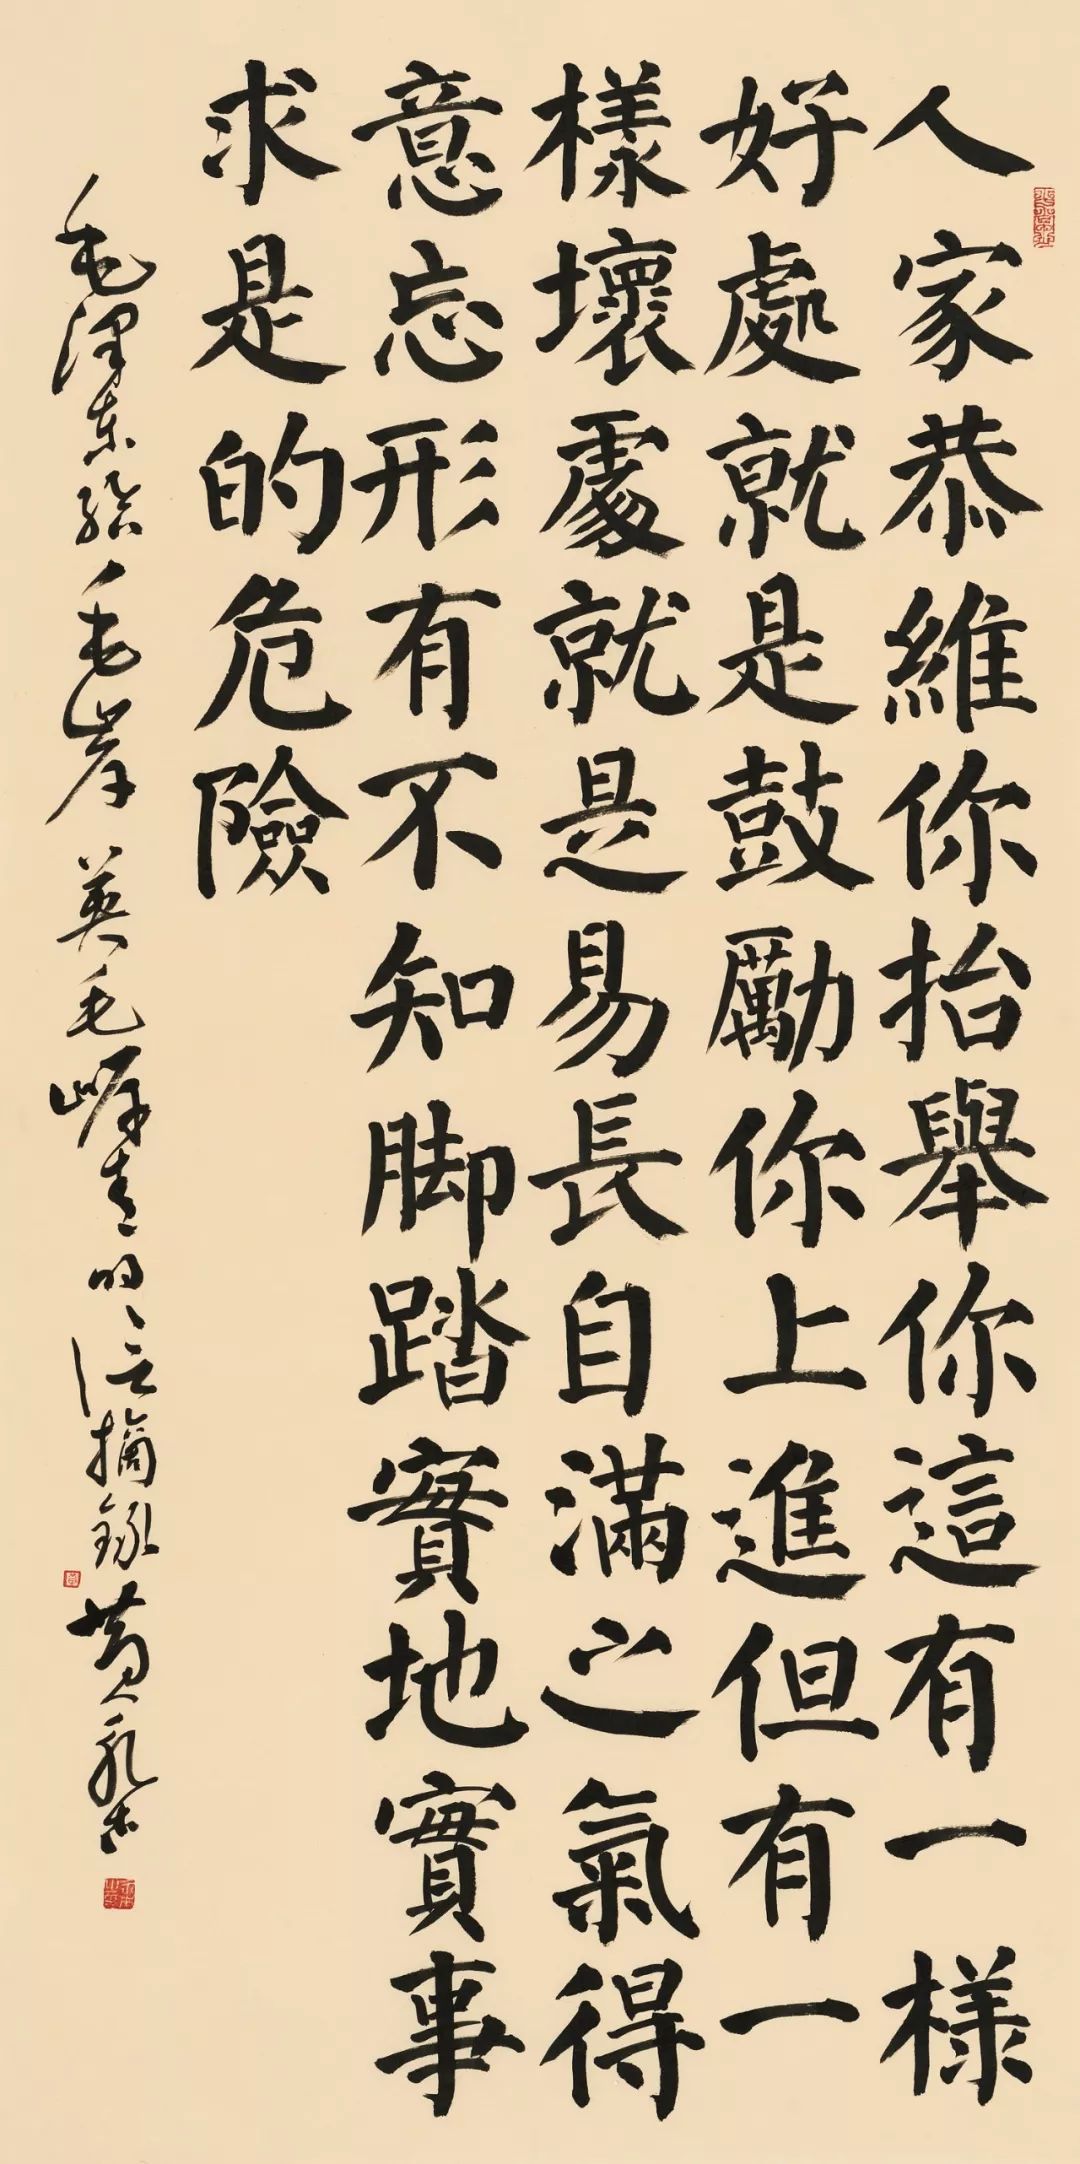 人家恭維你抬舉你這有一樣
好處就是鼓勵你上進但有一
樣壞處就是易長自滿之氣得
意忘形有不知脚踏實地實事
求是的危險
毛澤东給毛岸英毛岸青的信摘錄黄永